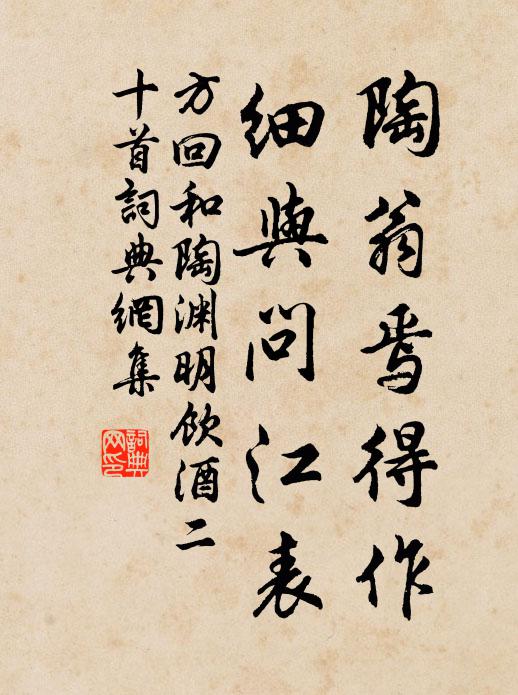 陶翁焉得作
細與問江表
方回和陶渊明飲酒二
十首詞典網集
詞典
网印